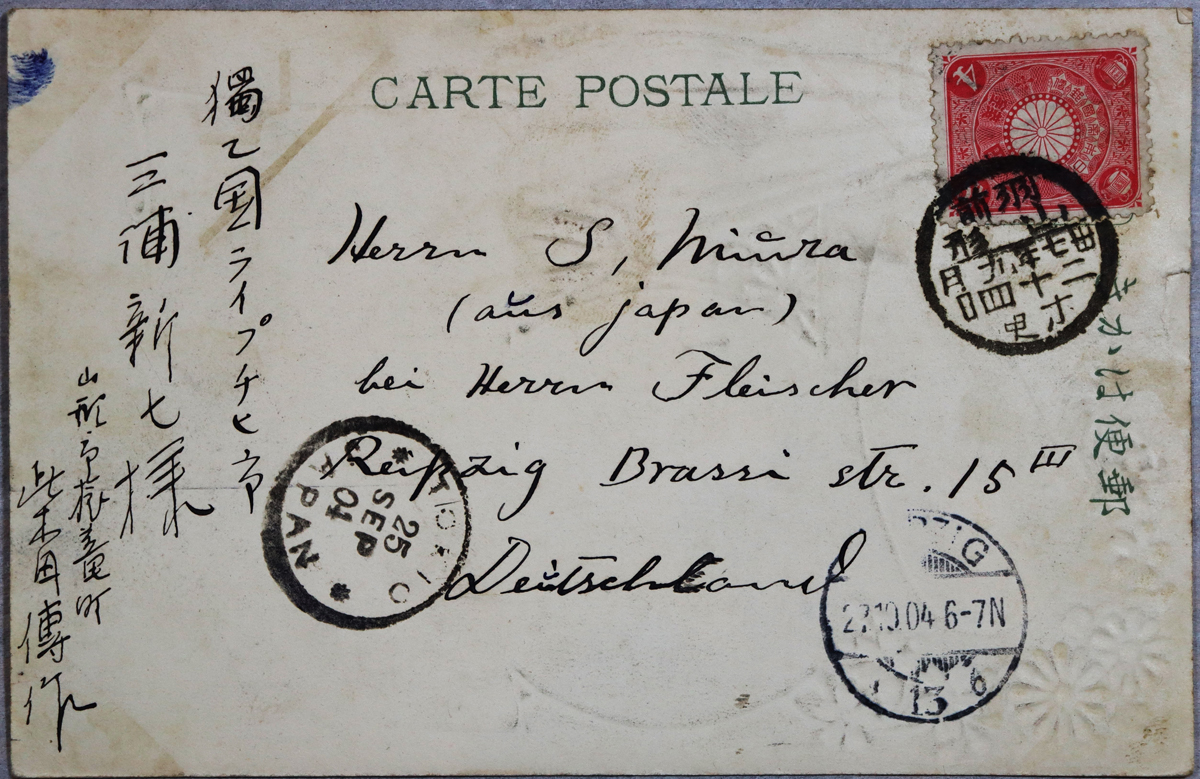 CARTE POSTALE
郵便はかき
Herrn S, Miura
(aus japan)
bei Herrn Fleischer
Leipzig Brassi str. 15 III
Deutschland
獨乙国ライプチヒ市
三浦新七様
山形市旅篭町
柴田傳作
羽前
山形
卅七年九月
二十四日
TOKIO
25
SEP
04
JAPAN
ZIG
27.10.04 6-7N
13